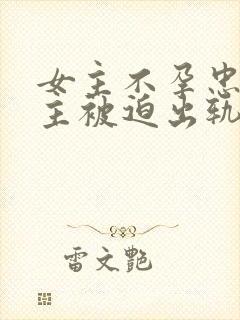 女主不孕忠
主被迫出轨
雷文艷